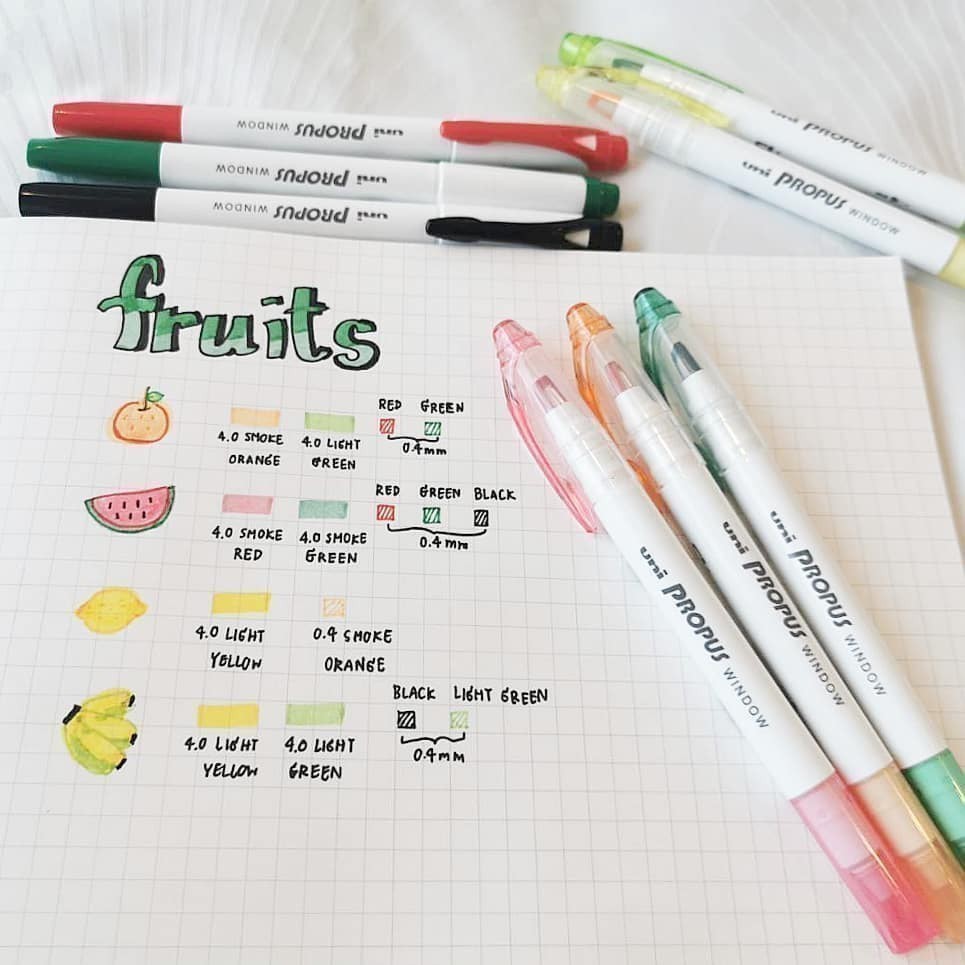 uni PROPUS WINDOW
uni PROPUS WINDOW
uni PROPUS WINDOW
uni PROPUS WINDOW
uni PROPUS WINDOW
fruits
RED GREEN
4.0 SMOKE ORANGE
4.0 LIGHT GREEN
0.4mm
RED GREEN BLACK
4.0 SMOKE RED
4.0 SMOKE GREEN
0.4mm
4.0 LIGHT YELLOW
0.4 SMOKE ORANGE
BLACK LIGHT GREEN
4.0 LIGHT YELLOW
4.0 LIGHT GREEN
0.4mm
uni PROPUS WINDOW
uni PROPUS WINDOW
uni PROPUS WINDOW